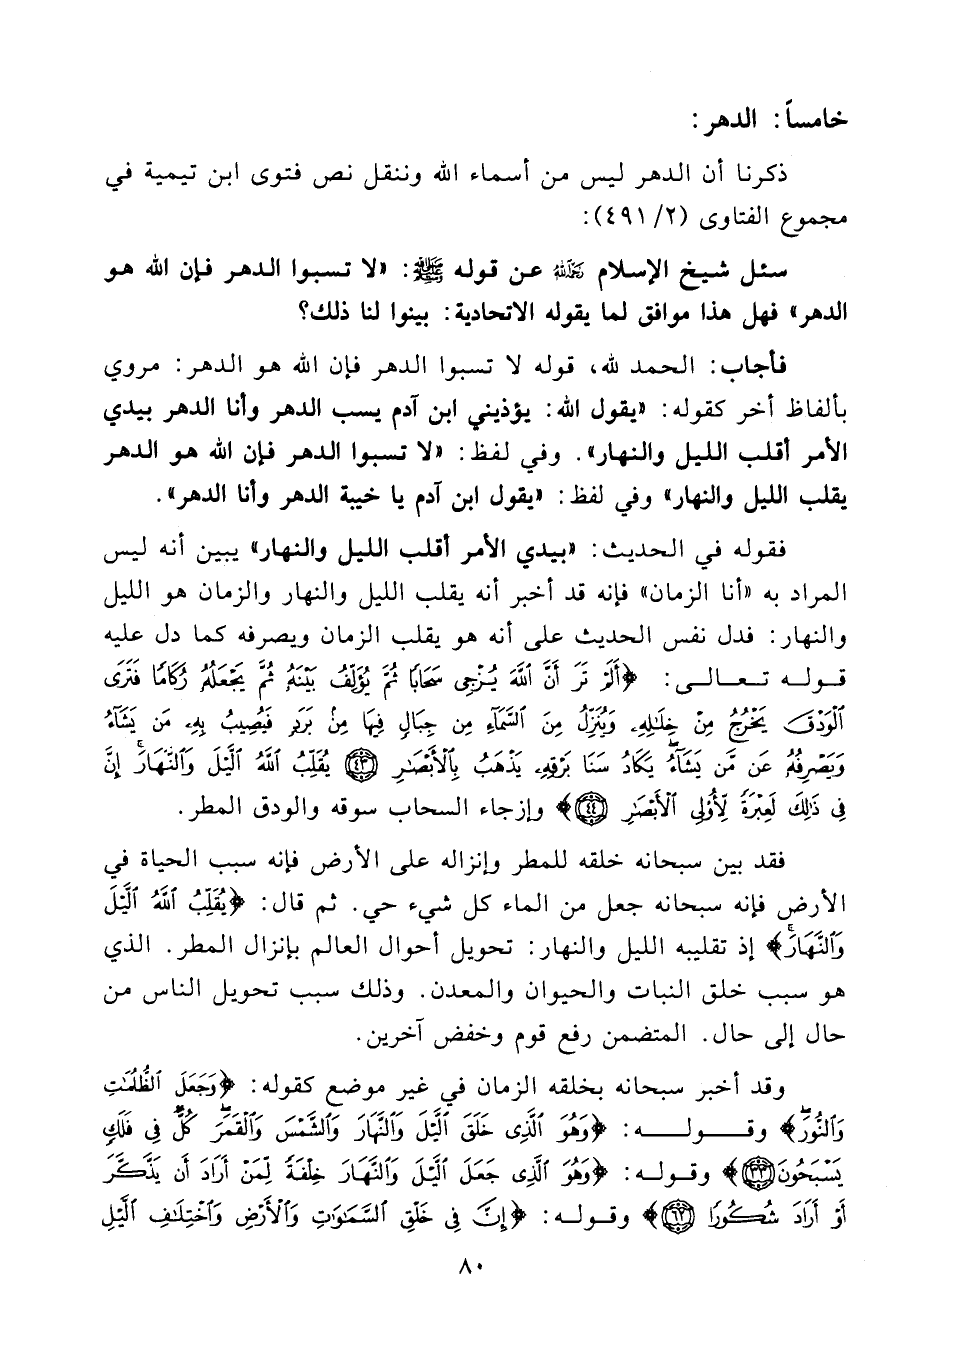 خامساً: الدهر:
ذكرنا أن الدهر ليس من أسماء الله وننقل نص فتوى ابن تيمية في
مجموع الفتاوى (٢/ ٤٩١):
سئل شيخ الإسلام رحمه الله عن قوله ﷺ: «لا تسبوا الدهر فإن الله هو
الدهر» فهل هذا موافق لما يقوله الاتحادية: بينوا لنا ذلك؟
فأجاب: الحمد لله، قوله لا تسبوا الدهر فإن الله هو الدهر: مروي
بألفاظ أخر كقوله: «يقول الله: يؤذيني ابن آدم يسب الدهر وأنا الدهر بيدي
الأمر أقلب الليل والنهار». وفي لفظ: «لا تسبوا الدهر فإن الله هو الدهر
يقلب الليل والنهار» وفي لفظ: «يقول ابن آدم يا خيبة الدهر وأنا الدهر».
فقوله في الحديث: «بيدي الأمر أقلب الليل والنهار» يبين أنه ليس
المراد به «أنا الزمان» فإنه قد أخبر أنه يقلب الليل والنهار والزمان هو الليل
والنهار: فدل نفس الحديث على أنه هو يقلب الزمان ويصرفه كما دل عليه
قوله تعالى: ﴿أَلَمْ تَرَ أَنَّ ٱللَّهَ يُزْجِى سَحَابًا ثُمَّ يُؤَلِّفُ بَيْنَهُۥ ثُمَّ يَجْعَلُهُۥ رُكَامًا فَتَرَى
ٱلْوَدْقَ يَخْرُجُ مِنْ خِلَـٰلِهِۦ وَيُنَزِّلُ مِنَ ٱلسَّمَآءِ مِن جِبَالٍ فِيهَا مِنۢ بَرَدٍ فَيُصِيبُ بِهِۦ مَن يَشَآءُ
وَيَصْرِفُهُۥ عَن مَّن يَشَآءُ ۖ يَكَادُ سَنَا بَرْقِهِۦ يَذْهَبُ بِٱلْأَبْصَـٰرِ ﴿٤٣﴾ يُقَلِّبُ ٱللَّهُ ٱلَّيْلَ وَٱلنَّهَارَ ۚ إِنَّ
فِى ذَٰلِكَ لَعِبْرَةً لِّأُو۟لِى ٱلْأَبْصَـٰرِ ﴿٤٤﴾﴾ وإزجاء السحاب سوقه والودق المطر.
فقد بين سبحانه خلقه للمطر وإنزاله على الأرض فإنه سبب الحياة في
الأرض فإنه سبحانه جعل من الماء كل شيء حي. ثم قال: ﴿يُقَلِّبُ ٱللَّهُ ٱلَّيْلَ
وَٱلنَّهَارَ ۚ﴾ إذ تقليبه الليل والنهار: تحويل أحوال العالم بإنزال المطر. الذي
هو سبب خلق النبات والحيوان والمعدن. وذلك سبب تحويل الناس من
حال إلى حال. المتضمن رفع قوم وخفض آخرين.
وقد أخبر سبحانه بخلقه الزمان في غير موضع كقوله: ﴿وَجَعَلَ ٱلظُّلُمَـٰتِ
وَٱلنُّورَ ۖ﴾ وقوله: ﴿وَهُوَ ٱلَّذِى خَلَقَ ٱلَّيْلَ وَٱلنَّهَارَ وَٱلشَّمْسَ وَٱلْقَمَرَ ۖ كُلٌّ فِى فَلَكٍ
يَسْبَحُونَ ﴿٣٣﴾﴾ وقوله: ﴿وَهُوَ ٱلَّذِى جَعَلَ ٱلَّيْلَ وَٱلنَّهَارَ خِلْفَةً لِّمَنْ أَرَادَ أَن يَذَّكَّرَ
أَوْ أَرَادَ شُكُورًا ﴿٦٢﴾﴾ وقوله: ﴿إِنَّ فِى خَلْقِ ٱلسَّمَـٰوَٰتِ وَٱلْأَرْضِ وَٱخْتِلَـٰفِ ٱلَّيْلِ
٨٠